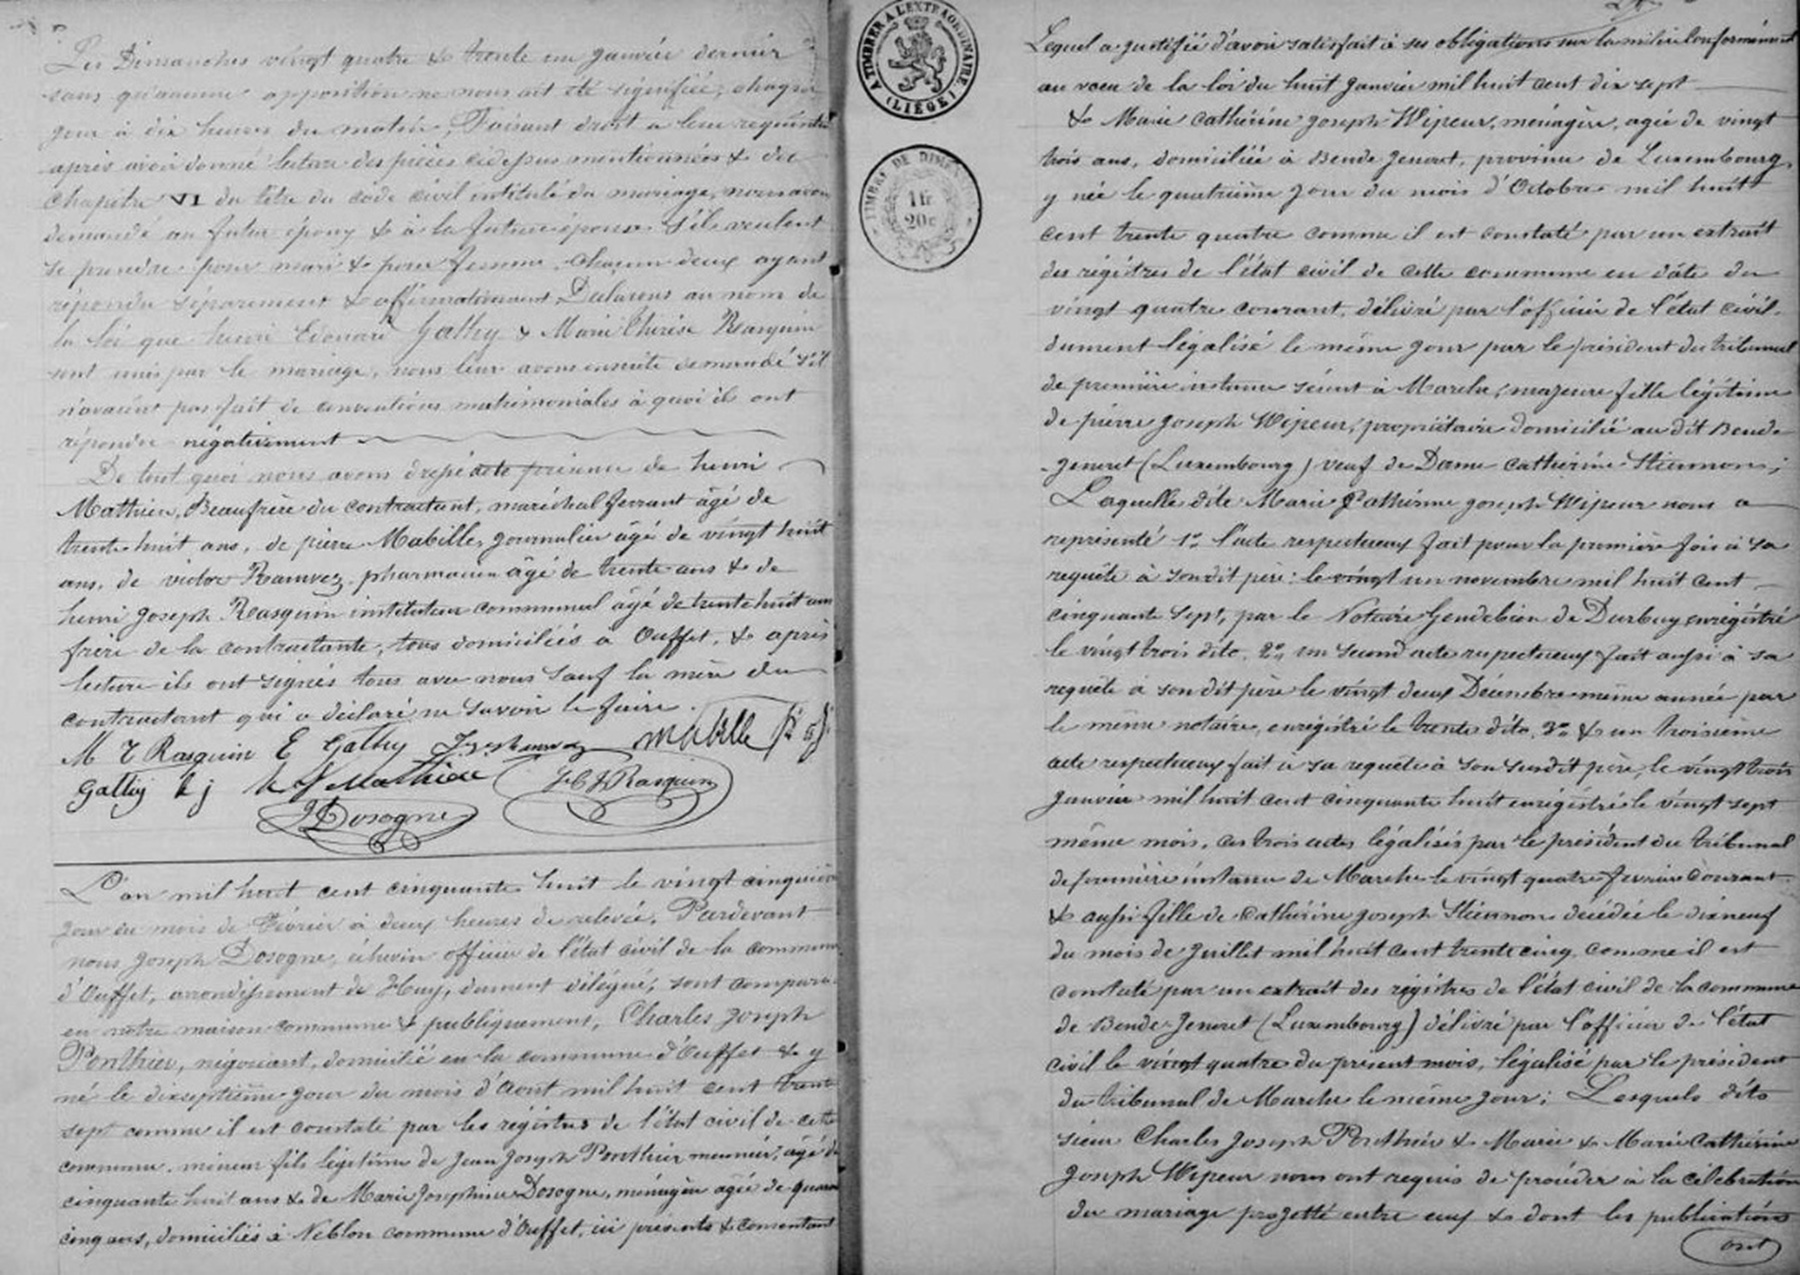 Les Dimanches vingt quatre & trente un Janvier dernier
sans qu'aucune opposition ne nous ait été signifiée, chaque
jour à dix heures du matin, Faisant droit a leur requisition
après avoir donné lecture des pièces cidessus mentionnées & du
chapitre VI du titre du code civil intitulé du mariage, nous avons
demandé au futur époux & à la future épouse s'ils veulent
se prendre pour mari & pour femme, chacun deux ayant
répondu séparement & affirmativement, Declarons au nom de
la loi que henri Edouard Gathy & Marie Thérèse Rasquin
sont unis par le mariage, nous leur avons ensuite demandé s'il
n'avaient pas fait de conventions matrimoniales à quoi ils ont
répondu négativement
De tout quoi nous avons drepé acte présence de henri
Mathieu, Beaufrère du contractant, maréchal ferrant âgé de
trente huit ans, de pierre Mabille, journalier âgé de vingt huit
ans, de victor pharmacien âgé de trente ans & de
henri Joseph Rasquin instituteur communal âgé de trente huit ans
frère de la contractante, tous domiciliés à Ouffet, & après
lecture ils ont signés tous avec nous sauf la mère du
contractant qui a déclaré ne savoir le faire.
M T Rasquin E Gathy Mabille
Gathy h j Mathieu Rasquin
J Dosogne
L'an mil huit cent cinquante huit le vingt cinquième
jour du mois de Février à deux heures de relevée, Pardevant
nous Joseph Dosogne, échevin officier de l'état civil de la commune
d'Ouffet, arrondissement de Huy, dument délégué, sont comparus
en notre maison commune & publiquement, Charles Joseph
Ponthier, négociant, domicilié en la commune d'Ouffet & y
né le dixseptième jour du mois d'Aout mil huit cent trente
sept comme il est constaté par les régistres de l'état civil de cette
commune, mineur fils légitime de Jean Joseph Ponthier meunier, âgé de
cinquante huit ans & de Marie Josephine Dosogne, ménagère agée de quarante
cinq ans, domiciliés à Neblon commune d'Ouffet, ici présents & consentant
A TIMBRER A L'EXTRAORDINAIRE
(LIÉGE)
TIMBRE DE DIMENSION
1 fr
20 c
Lequel a justifié d'avoir satisfait à ses obligations sur la milice conformément
au voeu de la loi du huit Janvier mil huit cent dix sept
& Marie Catherine Joseph Wipeur, ménagère, agée de vingt
trois ans, domiciliée à Bende Jeneret, province de Luxembourg,
y née le quatrième jour du mois d'Octobre mil huit
cent trente quatre comme il est constaté par un extrait
des régistres de l'état civil de cette commune en date du
vingt quatre courant, délivré par l'officier de l'état civil,
dument légalisé le même jour par le président du tribunal
de première instance séant à Marche, majeure fille légitime
de pierre Joseph Wipeur, propriétaire domicilié au dit Bende
Jeneret (Luxembourg) veuf de Dame Catherine Stiennon;
Laquelle dite Marie Catherine Joseph Wipeur nous a
représenté 1°. l'acte respectueux fait pour la première fois à sa
requête à son dit père: le vingt un novembre mil huit cent
cinquante sept, par le Notaire Gendebien de Durbuy enrégistré
le vingt trois dito, 2°. un second acte respectueux fait aussi à sa
requête à son dit père le vingt deux Décembre même année par
le même notaire, enrégistré le trente dito, 3°. & un troisième
acte respectueux fait à sa requête à son susdit père, le vingt trois
Janvier mil huit cent cinquante huit enrégistré le vingt sept
même mois, ces trois actes légalisés par le président du tribunal
de première instance de Marche le vingt quatre fevrier courant.
& aussi fille de Catherine Joseph Stiennon décédée le dix neuf
du mois de Juillet mil huit cent trente cinq comme il est
constaté par un extrait des régistres de l'état civil de la commune
de Bende-Jeneret (Luxembourg) délivré par l'officier de l'état
civil le vingt quatre du présent mois, légalisé par le président
du tribunal de Marche le même jour; Lesquels dits
sieur Charles Joseph Ponthier & Marie & Marie Catherine
Joseph Wipeur nous ont requis de procéder à la célébration
du mariage projetté entre eux & dont les publications
ont